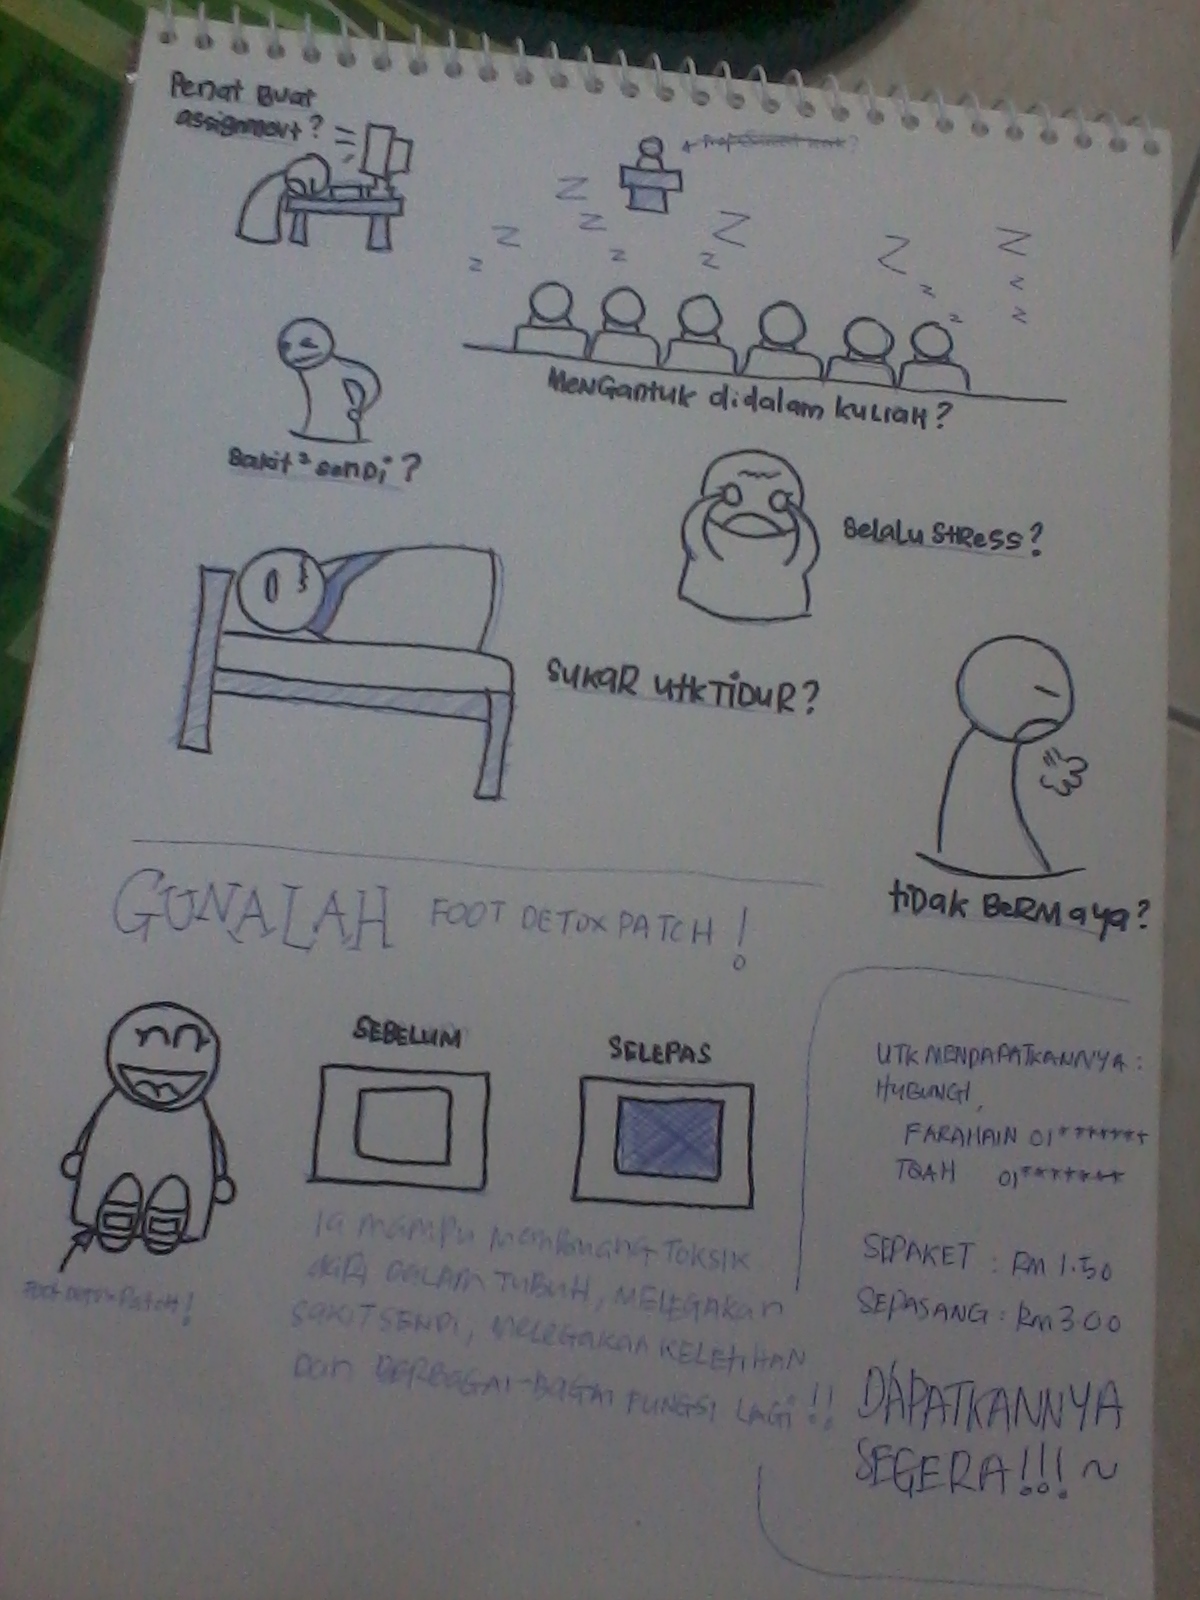 Penat Buat
assignment?
Mengantuk didalam kuliah?
Sakit² sendi?
Selalu stress?
Sukar utk tidur?
tidak bermaya?
GUNALAH FOOT DETOX PATCH!
SEBELUM
SELEPAS
Foot Detox Patch!
Ia mampu membuang toksik
dari dalam tubuh, melegakan
sakit sendi, melegakan keletihan
dan berbagai-bagai fungsi lagi!!
UTK MENDAPATKANNYA:
HUBUNGI,
FARAHAIN 01********
TQAH 01********
SEPAKET : RM 1.50
SEPASANG : RM 3.00
DAPATKANNYA
SEGERA!!! ~